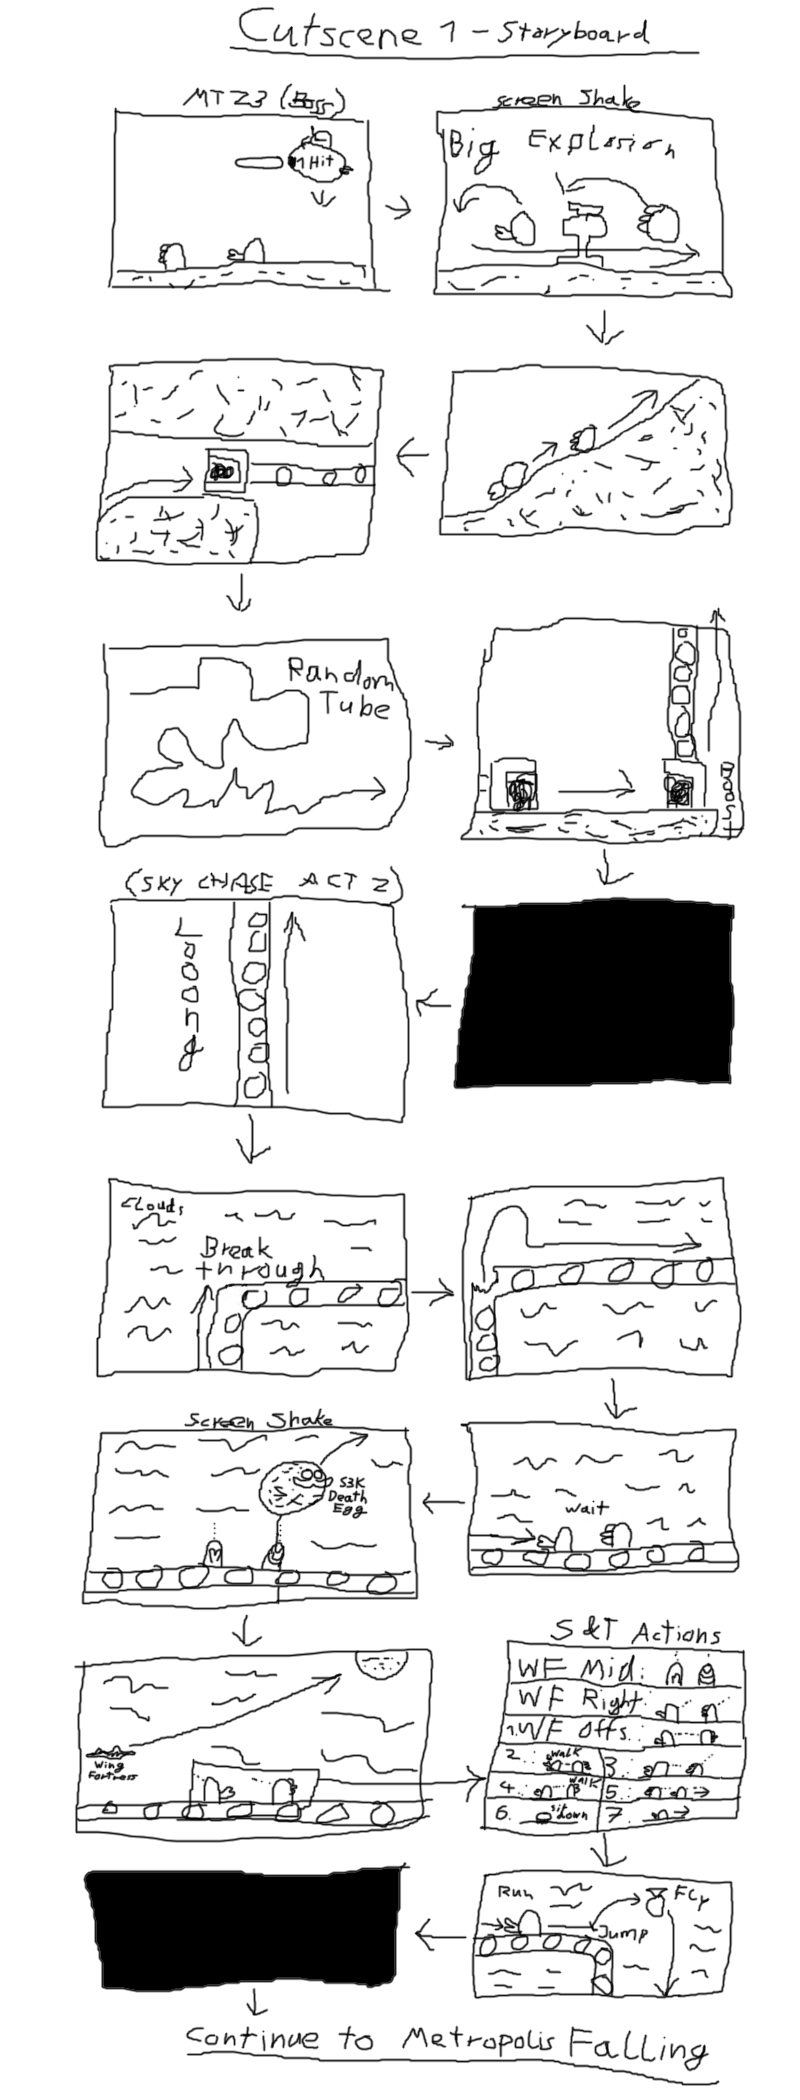 Cutscene 1 - Storyboard
MTZ3 (Boss)
1 Hit
screen Shake
Big Explosion
Random
Tube
Looong
(SKY CHASE ACT 2)
Clouds
Break
through
wait
Screen Shake
S3K
Death
Egg
Wing
Fortress
S&T Actions
WF Mid:
WF Right:
1. WF Offs.
2. walk
3.
4. walk
5.
6. sitdown
7.
Run
Jump
Fly
Continue to Metropolis Falling